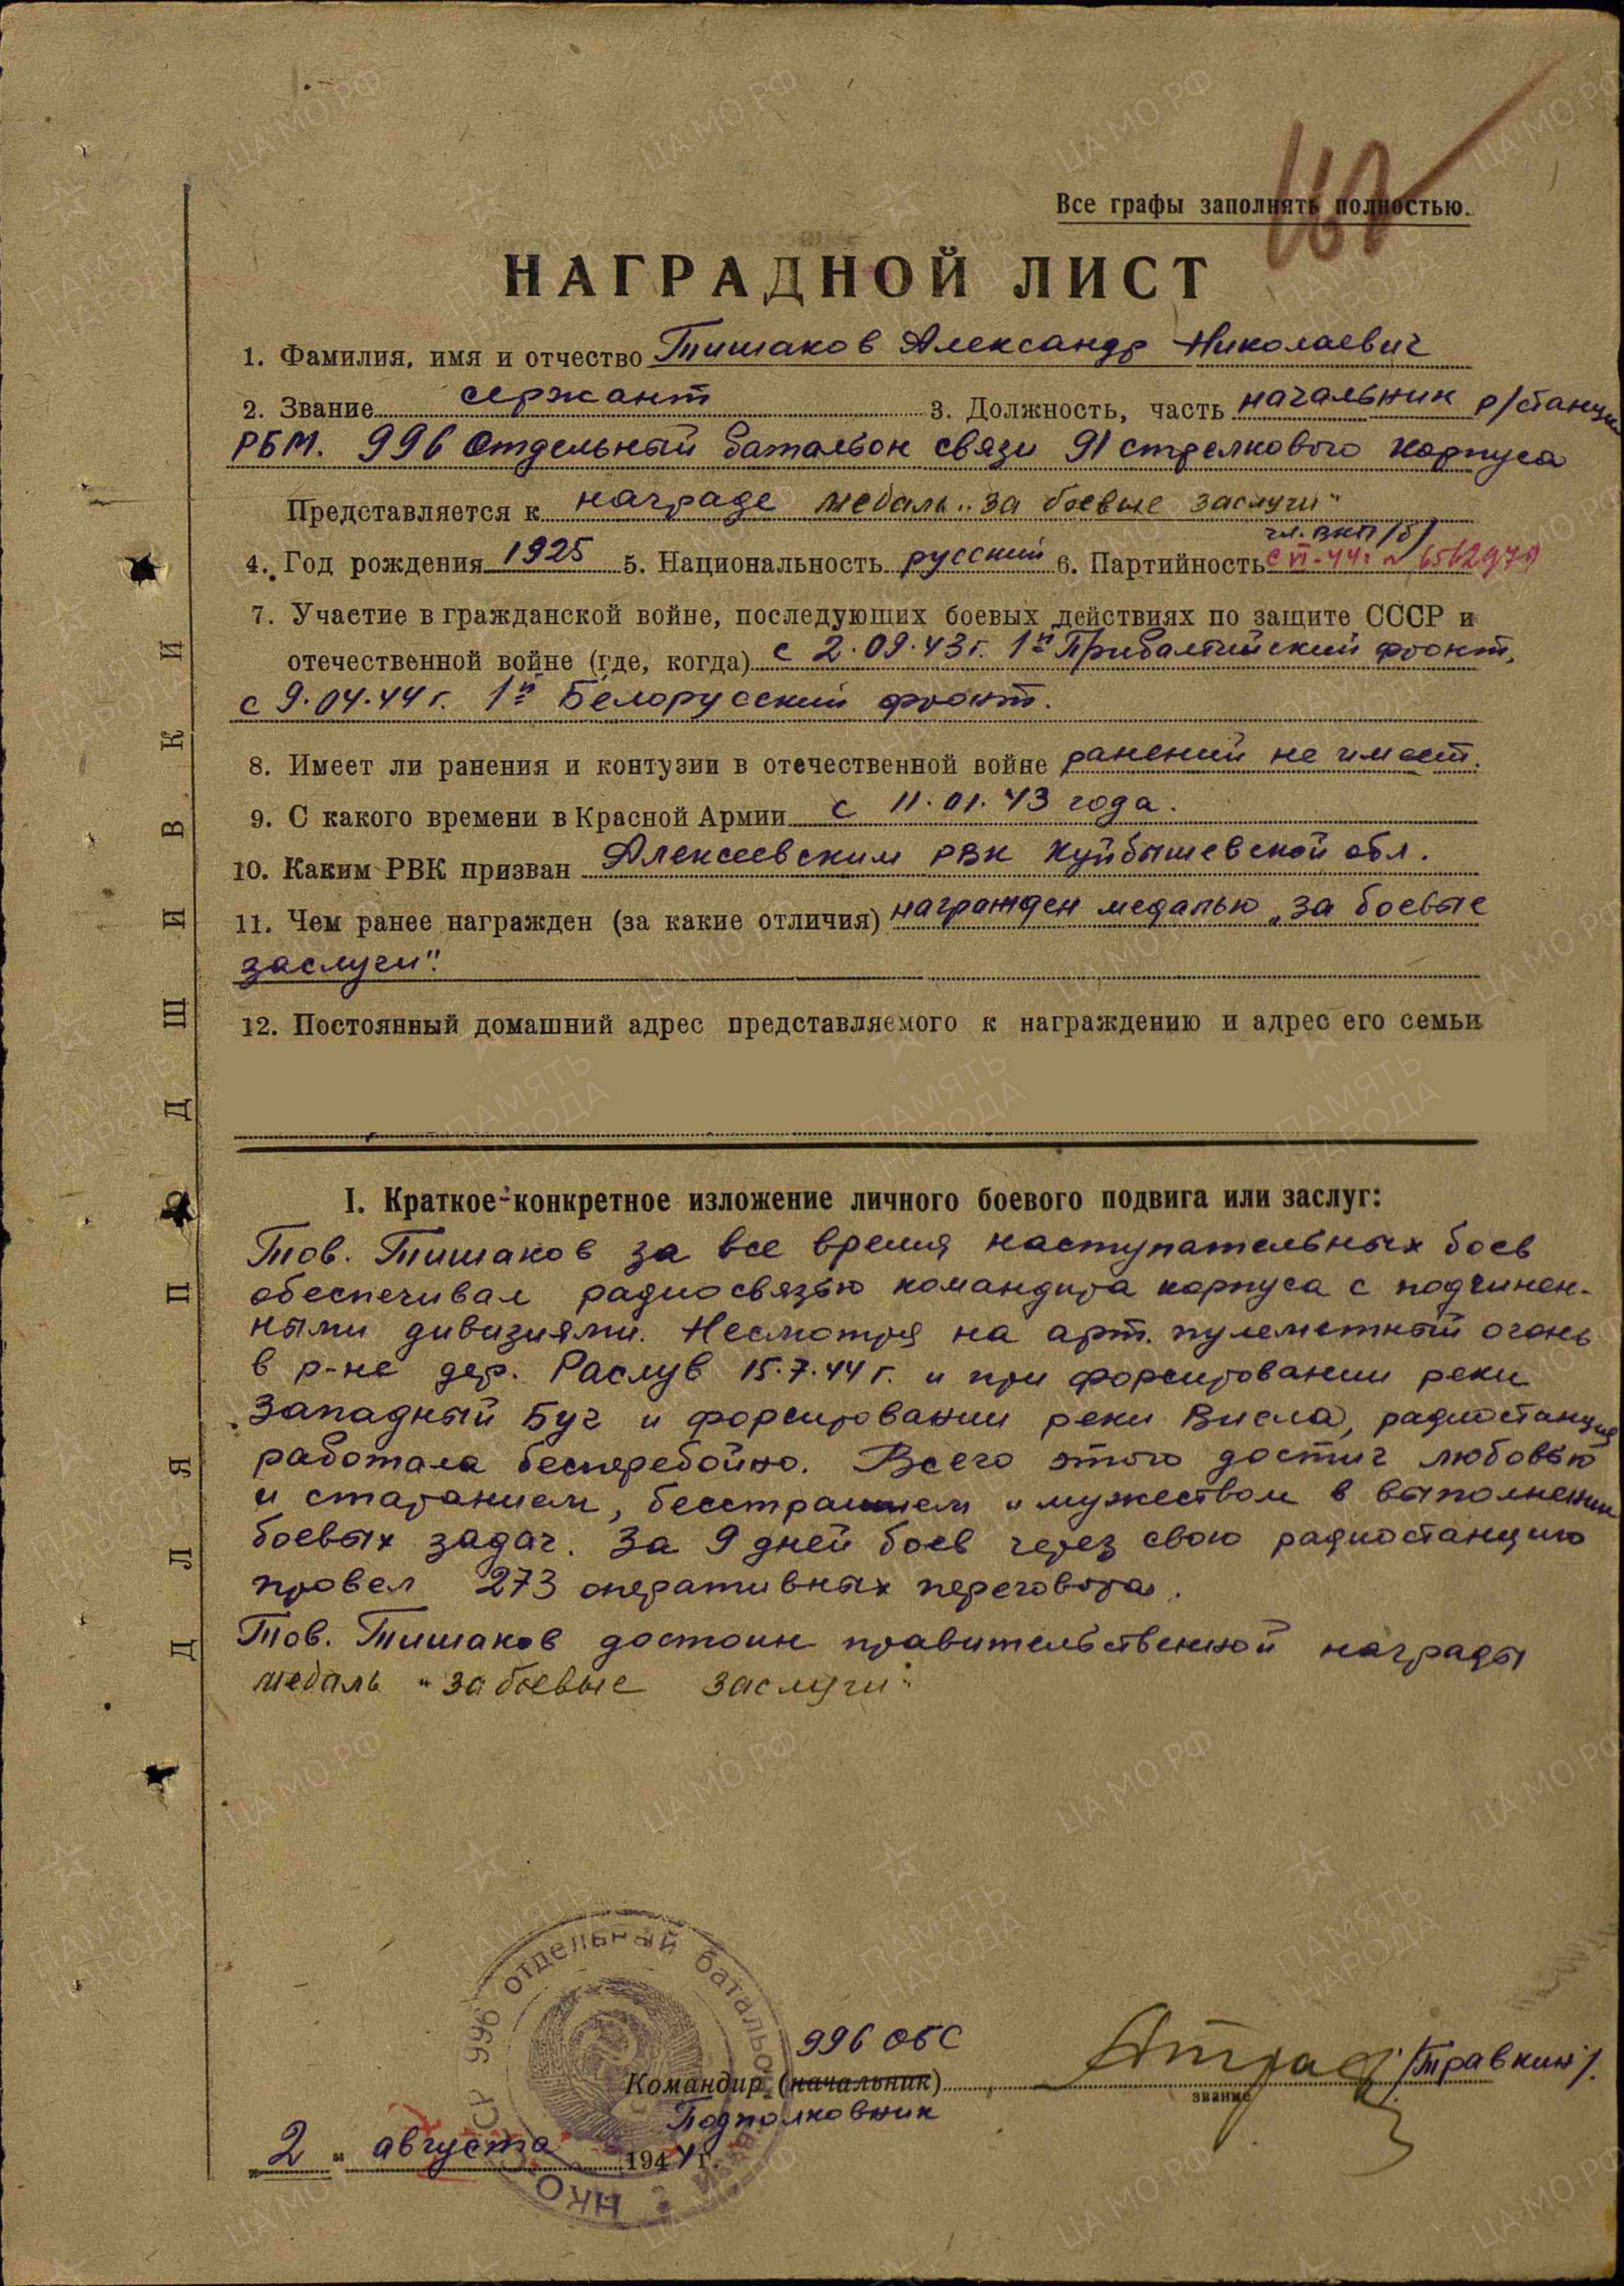 Все графы заполнять полностью.
НАГРАДНОЙ ЛИСТ
1. Фамилия, имя и отчество Тишаков Александр Николаевич
2. Звание сержант 3. Должность, часть начальник р/станции
РБМ. 996 Отдельный батальон связи 91 стрелкового корпуса
Представляется к награде медаль „за боевые заслуги"
чл. ВКП/б/
4. Год рождения 1925 5. Национальность русский 6. Партийность с VI-44г
7. Участие в гражданской войне, последующих боевых действиях по защите СССР и
отечественной войне (где, когда) с 2.09.43г. 1й Прибалтийский фронт,
с 9.04.44г. 1й Белорусский фронт.
8. Имеет ли ранения и контузии в отечественной войне ранений не имеет.
9. С какого времени в Красной Армии с 11.01.43 года.
10. Каким РВК призван Алексеевским РВК Куйбышевской обл.
11. Чем ранее награжден (за какие отличия) награжден медалью „за боевые
заслуги".
12. Постоянный домашний адрес представляемого к награждению и адрес его семьи
ДЛЯ ПОДШИВКИ
I. Краткое конкретное изложение личного боевого подвига или заслуг:
Тов. Тишаков за все время наступательных боев
обеспечивал радиосвязью командира корпуса с подчинен-
ными дивизиями. Несмотря на арт. пулеметный огонь
в р-не дер. Раслув 15.7.44г. и при форсировании реки
Западный Буг и форсировании реки Висла, радиостанция
работала бесперебойно. Всего этого достиг любовью
и старанием, бесстрашием и мужеством в выполнении
боевых задач. За 9 дней боев через свою радиостанцию
провел 273 оперативных переговора.
Тов. Тишаков достоин правительственной награды
медаль „за боевые заслуги"
996 отдельный батальон связи
НКО СССР
996 ОБС
Командир (начальник) /Травкин/.
звание
Подполковник
„2" августа 1944 г.
ЦА МО РФ
ПАМЯТЬ НАРОДА